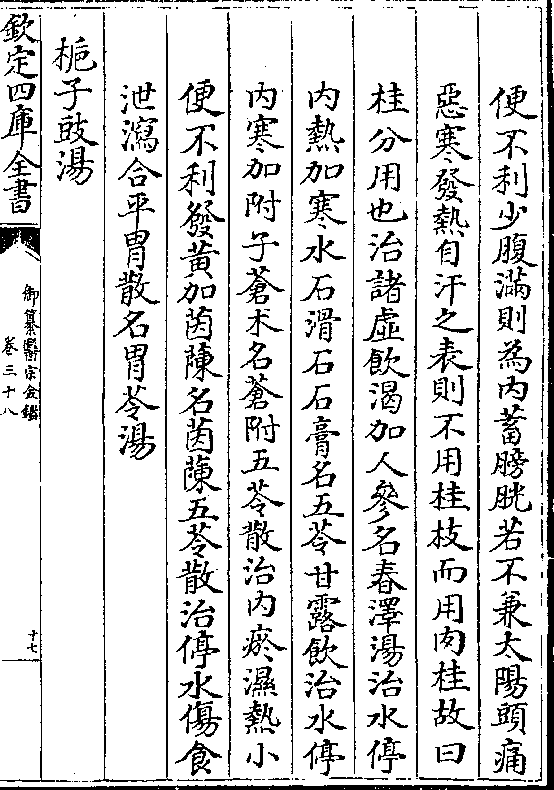 便不利少腹滿則為內蓄膀胱若不兼太陽頭痛
惡寒發熱自汗之表則不用桂枝而用肉桂故曰
桂分用也治諸虛飲渴加人參名春澤湯治水停
內熱加寒水石滑石石膏名五苓甘露飲治水停
內寒加附子蒼朮名蒼附五苓散治內瘀濕熱小
便不利發黃加茵陳名茵陳五苓散治停水傷食
泄瀉合平胃散名胃苓湯
梔子豉湯
欽定四庫全書
御纂醫宗金鑑
卷三十八
十七